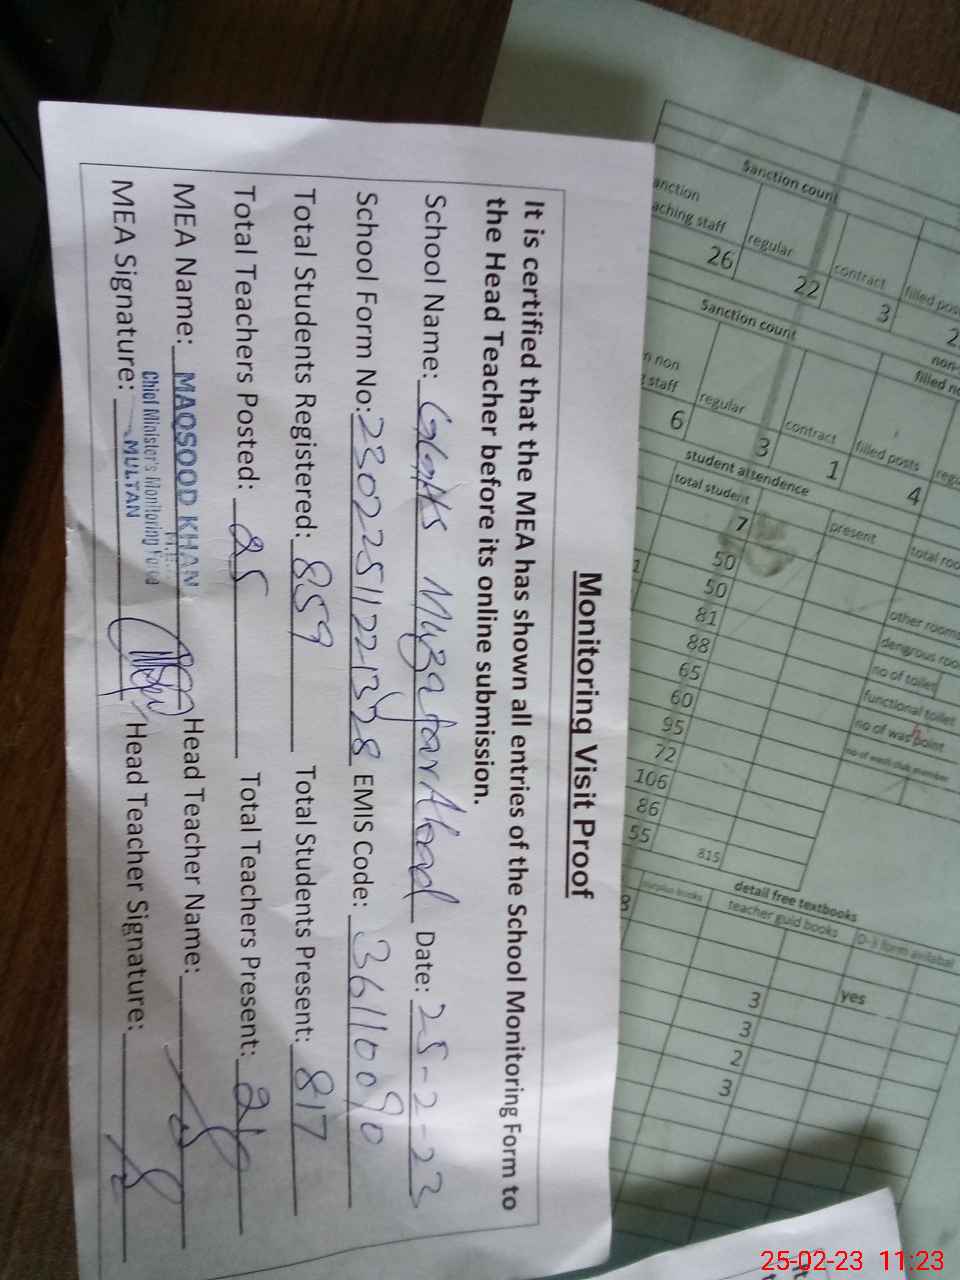 Monitoring Visit Proof
It is certified that the MEA has shown all entries of the School Monitoring Form to
the Head Teacher before its online submission.
School Name: GGHS Muzafar Abad Date: 25-2-23
School Form No: EMIS Code: 36110090
Total Students Registered: 859 Total Students Present: 817
Total Teachers Posted: 25 Total Teachers Present:
MEA Name: MAQSOOD KHAN Head Teacher Name:
MEA Signature: Head Teacher Signature:
Chief Minister's Monitoring Force
MULTAN
Sanction count
aching staff regular contract filled
26 22 3 2
Sanction count
staff regular contract filled posts
6 3 1 4
student attendence
total student present
7
50
50
81
88
65
60
95
72
106
86
55
815
other rooms
no of toilet
functional toilet
no of was point
detail free textbooks
surplus books teacher guid books D-3 form avilabal
8 yes
3
3
2
3
25-02-23 11:23